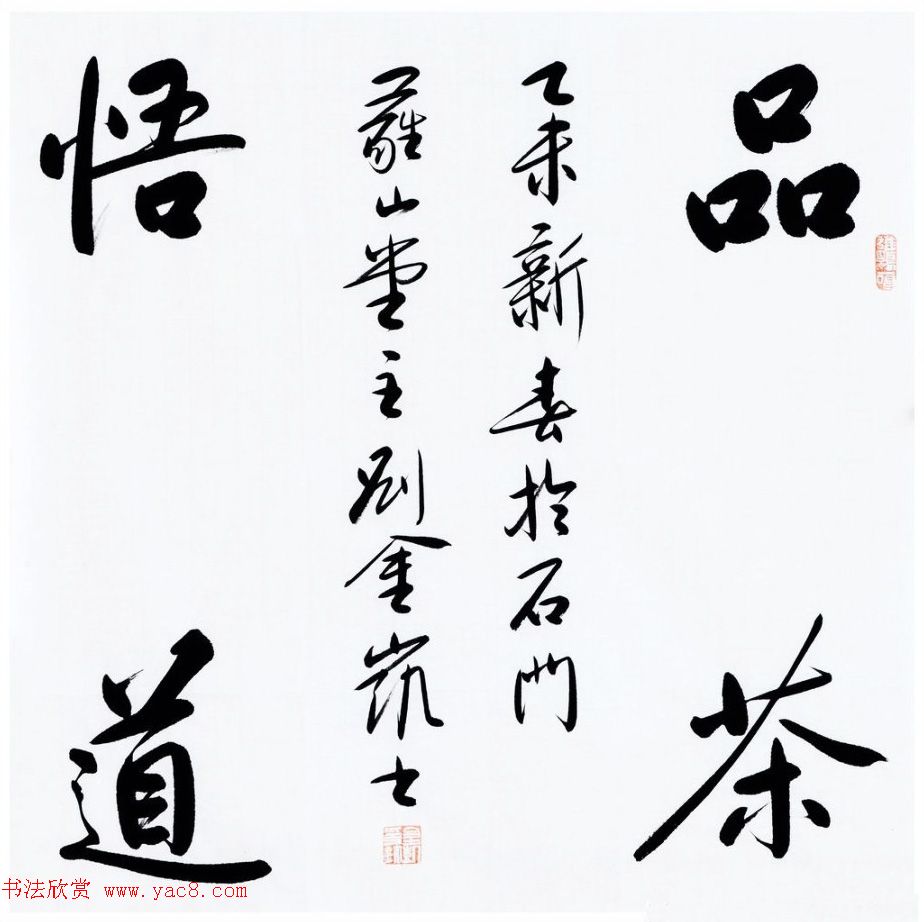 品茶
乙未新春於石門
山堂主劉金凱
悟道
书法欣赏 www.yac8.com